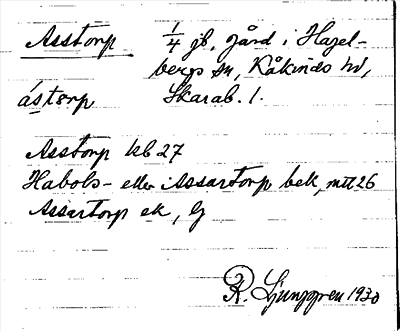 Asstorp 1/4 jb. gård i Hagel-
bergs sn, Kåkinds hd,
ástørp Skarab. l.
Asstorp kb 27
Habols- eller Assartorp bek, mtl 26
Assartorp ek, lj
R. Ljunggren 1930